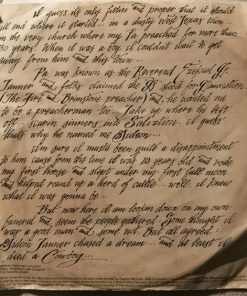 I guess its only fittin' and proper that it should
end where it started... in a dusty West Texas town
in the very church where my Pa preached for more than
30 years. When I was a boy I couldn't wait to get
away from him and this town...
Pa was known as the Reverend Ezekiel J.
Tanner and folks claimed the B stood for Damnation.
The Fire & Brimstone preacher, he wanted me
to be a preacherman too... pick up where he left
off... scarin' sinners and Salvation. I guess
that's why he named me Gideon.
I'm sure it musta been quite a disappointment
to him cause from the time I was 10 years old and rode
my first horse and slept under my first full moon
and helped round up a herd of cattle... well, I knew
what I was gonna be...
But now here I am lookin' down on my own
funeral and seein' the people gathered. Some thought I
was a good man and some not. But all agreed:
Gideon Tanner chased a dream... and at least he
died a Cowboy...